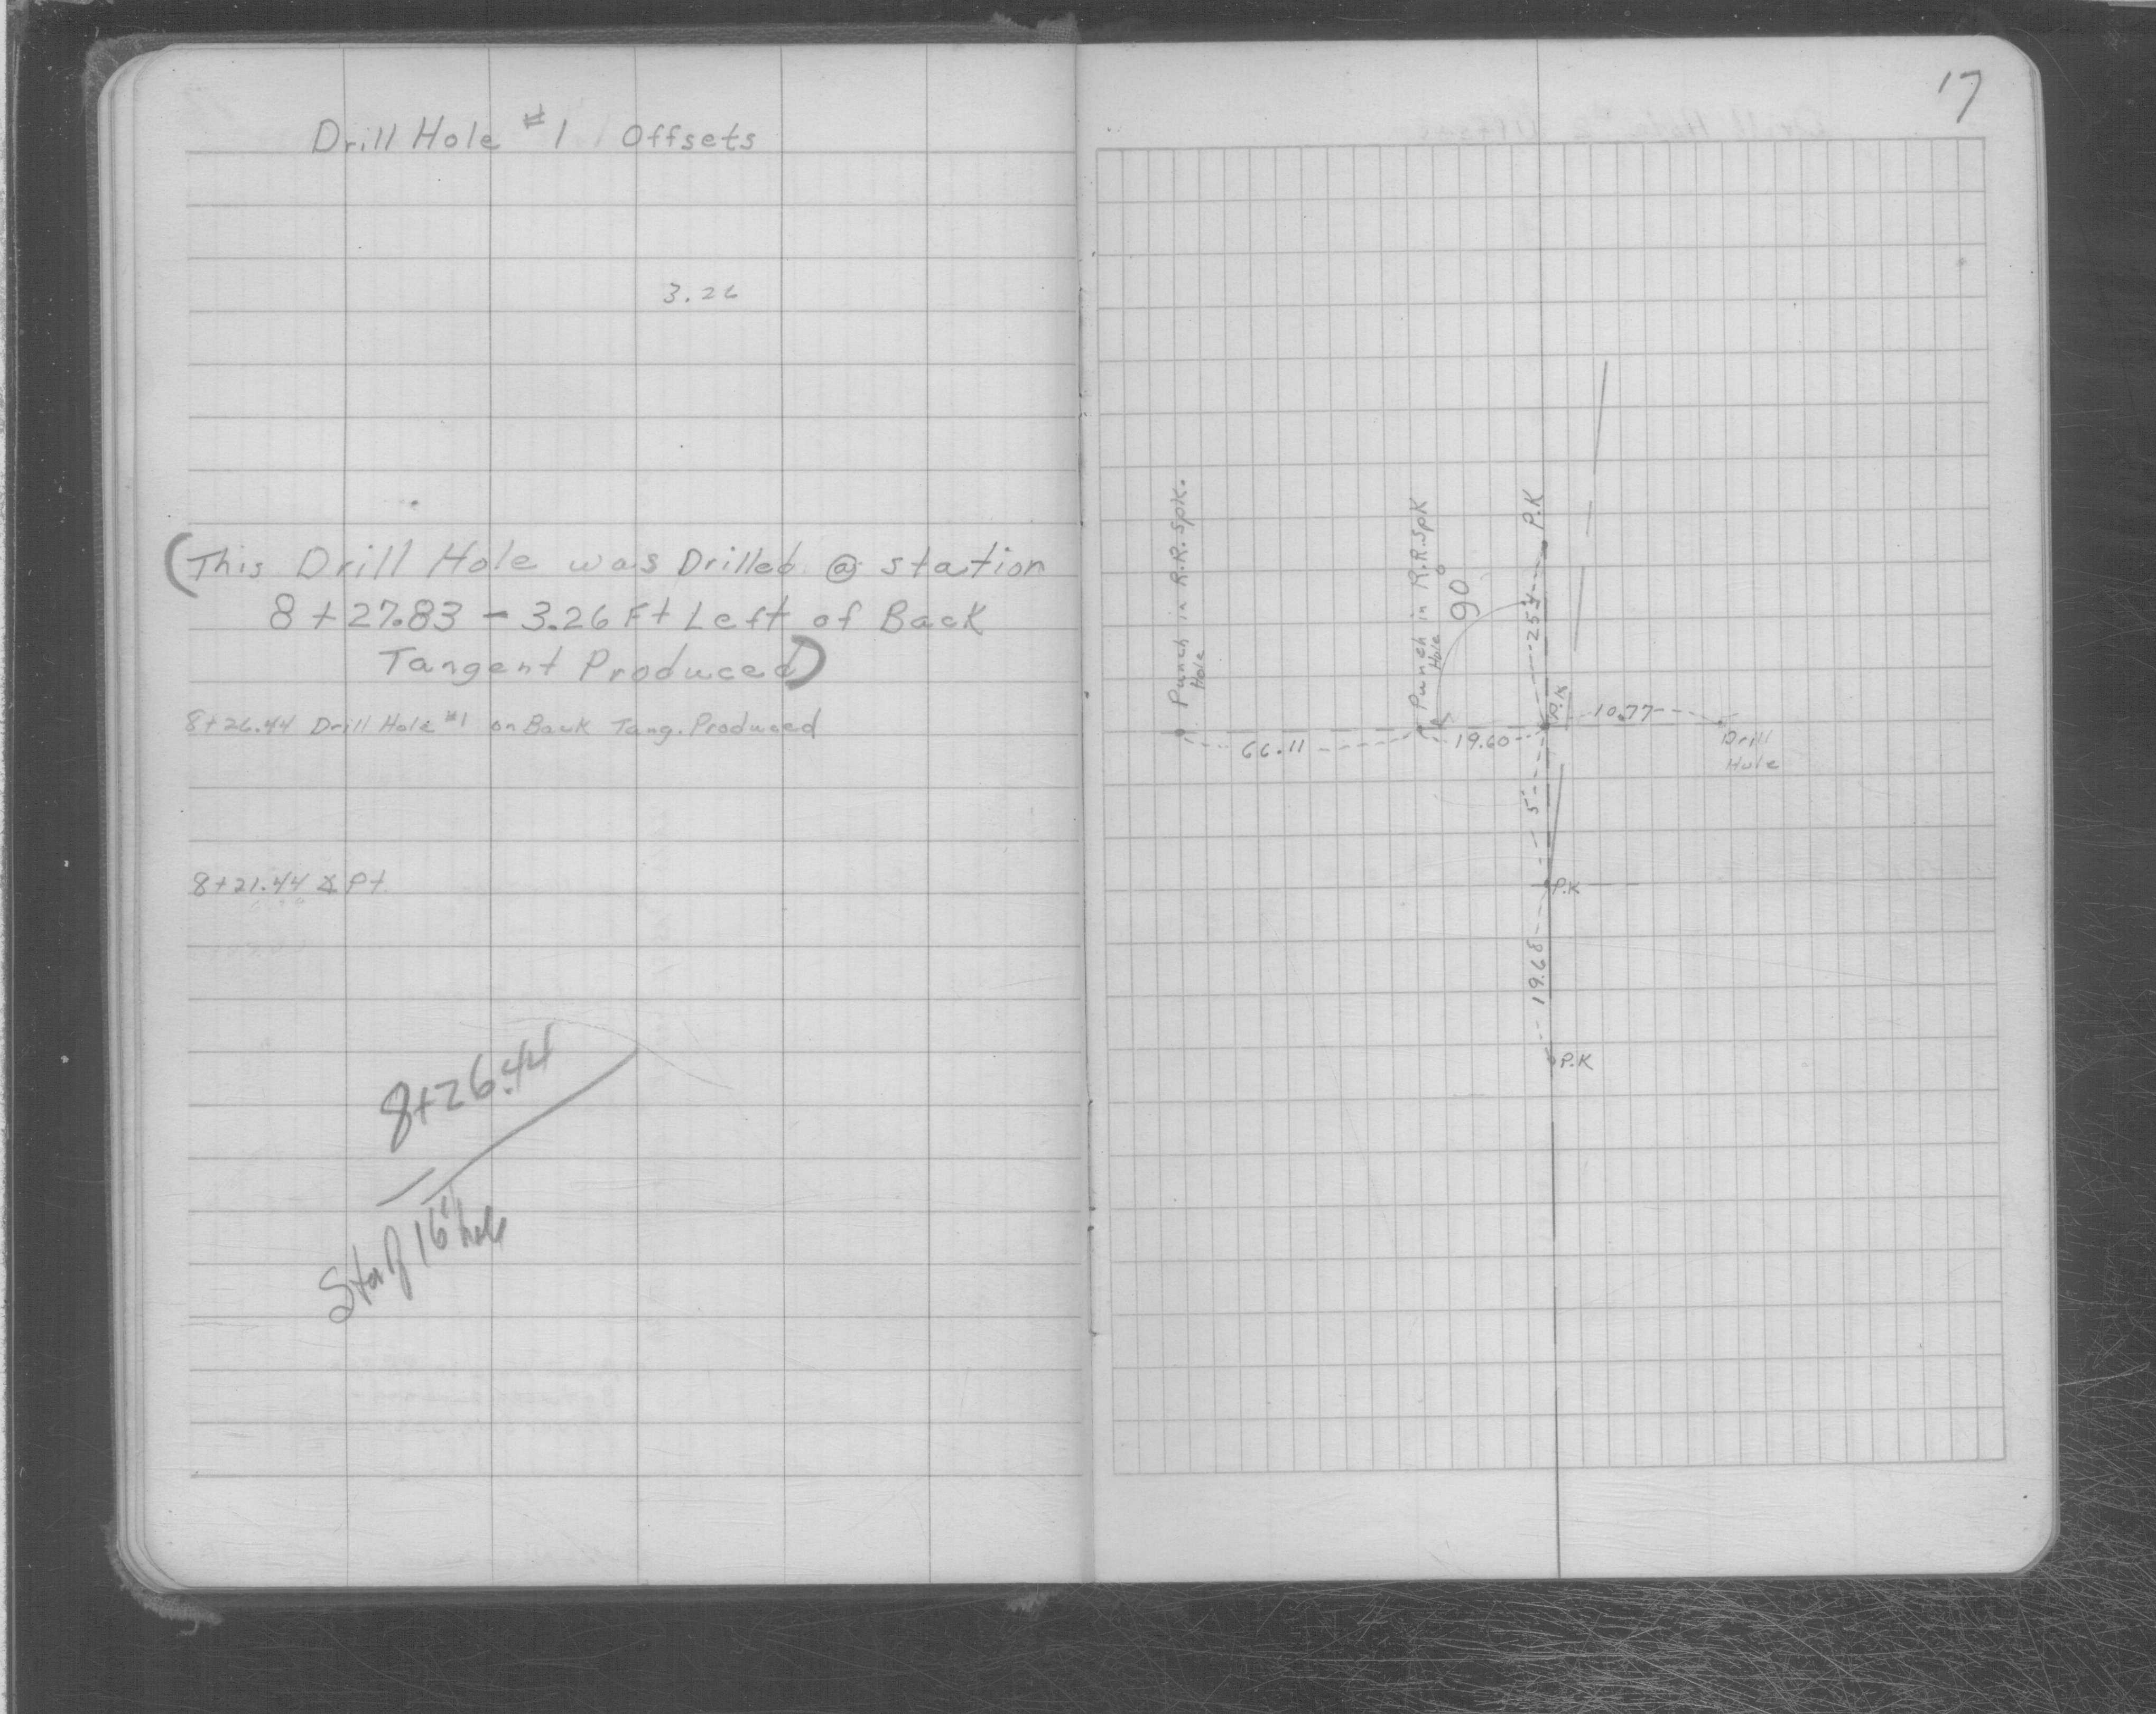 Drill Hole #1 Offsets
3.26
(This Drill Hole was Drilled @ station
8+27.83 - 3.26 Ft Left of Back
Tangent Produced)
8+26.44 Drill Hole #1 on Back Tang. Produced
8+21.44 ∡ Pt.
8+26.44
Sta of 16" hole
17
Punch in R.R. Spk.
Hole
Punch in R.R. Spk
Hole
90°
P.K
25
P.K
10.77
66.11
19.60
Drill
Hole
5
P.K
19.68
P.K